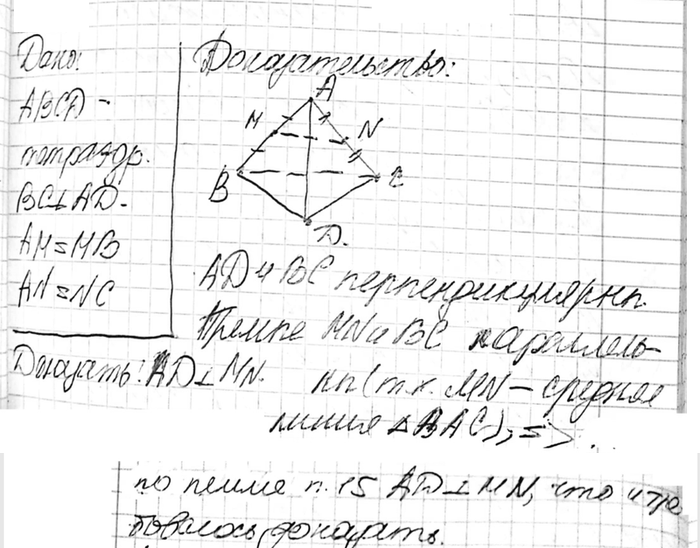 Дано:
ABCD -
тетраэдр.
BC⊥AD.
AM=MB
AN=NC
Доказать: AD⊥MN.
Доказательство:
A
M
N
B
C
D.
AD и BC перпендикулярны.
Прямые MN и BC параллель-
ны (т.к. MN – средняя
линия △BAC), =>.
по лемме п.15 AD⊥MN, что и тре
бовалось доказать.